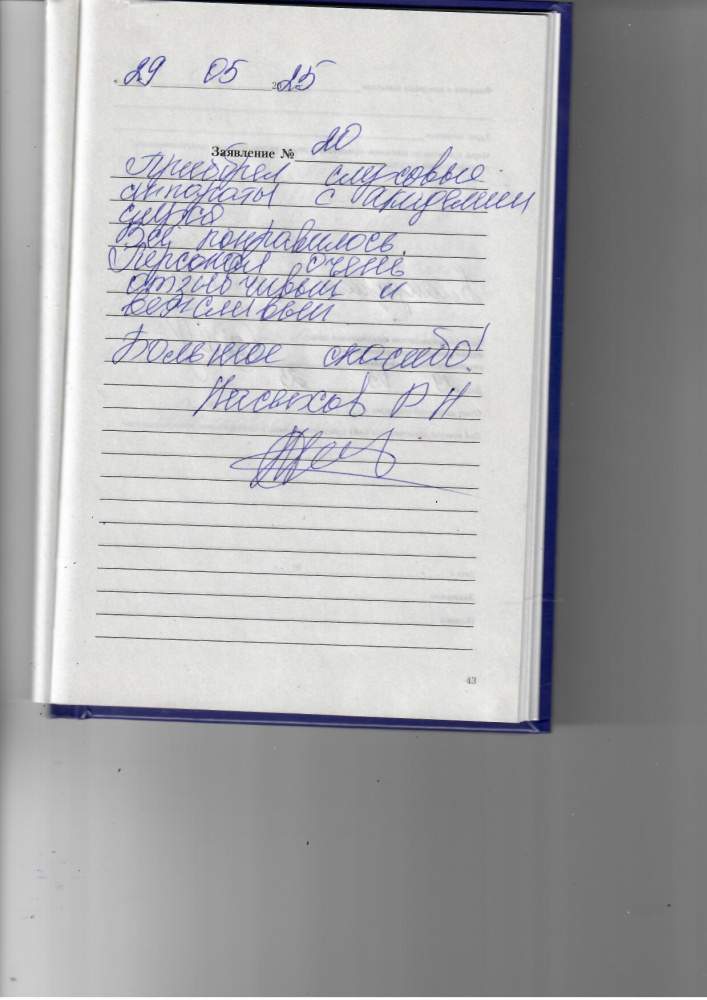 29 05 2025
Заявление № 20
Приобрел слуховые
аппараты с академии
слуха
Всё понравилось.
Персонал очень
отзывчивый и
вежливый
Большое спасибо!
Р Н
43